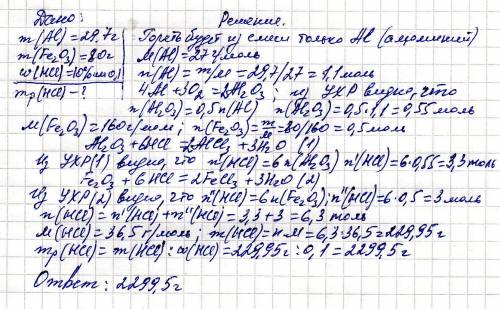 Дано: Решение.
m(Al)=29,7г Гореть будет из смеси только Al (алюминий)
m(Fe2O3)=80г M(Al)=27г/моль
ω(HCl)=10% или 0,1 n(Al)=m/M=29,7/27=1,1моль
mр(HCl)-? 4Al+3O2=2Al2O3; из УХР видно, что
n(Al2O3)=0,5n(Al) n(Al2O3)=0,5·1,1=0,55моль
M(Fe2O3)=160г/моль; n(Fe2O3)=m/M=80/160=0,5моль
Al2O3+6HCl=2AlCl3+3H2O (1)
Из УХР(1) видно, что n'(HCl)=6n(Al2O3) n'(HCl)=6·0,55=3,3моль
Fe2O3+6HCl=2FeCl3+3H2O (2)
Из УХР(2) видно, что n''(HCl)=6n(Fe2O3); n''(HCl)=6·0,5=3моль
n(HCl)=n'(HCl)+n''(HCl)=3,3+3=6,3моль
M(HCl)=36,5г/моль; m(HCl)=n·M=6,3·36,5=229,95г
mр(HCl)=m(HCl):ω(HCl)=229,95г:0,1=2299,5г
Ответ: 2299,5г